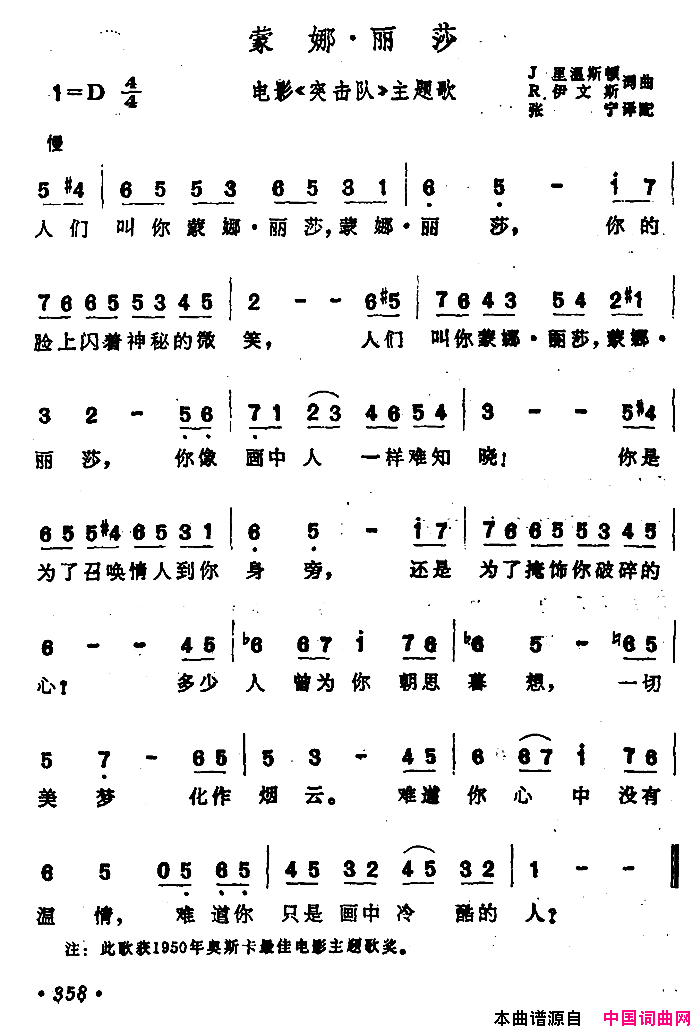 蒙娜·丽莎
1=D 4/4
电影《突击队》主题歌
J 里温斯顿
R.伊文斯 词曲
张宁译配
慢
5 #4 | 6 5 5 3 6 5 3 1 | 6 5 - i 7
人们 叫你蒙娜·丽莎,蒙娜·丽 莎, 你的
7 6 6 5 5 3 4 5 | 2 - - 6 #5 | 7 6 4 3 5 4 2 #1
脸上闪着神秘的微 笑, 人们 叫你蒙娜·丽莎,蒙娜·
3 2 - 5 6 | 7 1 2 3 4 6 5 4 | 3 - - 5 #4
丽 莎, 你像 画中人 一样难知 晓! 你是
6 5 5 #4 6 5 3 1 | 6 5 - i 7 | 7 6 6 5 5 3 4 5
为了召唤情人到你 身 旁, 还是 为了掩饰你破碎的
6 - - 4 5 | ♭6 6 7 i 7 6 | ♭6 5 - ♮6 5
心? 多少 人 曾为你 朝思 暮 想, 一切
5 7 - 6 5 | 5 3 - 4 5 | 6 6 7 i 7 6
美 梦 化作 烟 云。 难道 你 心 中 没有
6 5 0 5 6 5 | 4 5 3 2 4 5 3 2 | 1 - -
温 情, 难道你 只是画中冷 酷的 人?
注:此歌获1950年奥斯卡最佳电影主题歌奖。
·358·
本曲谱源自 中国词曲网